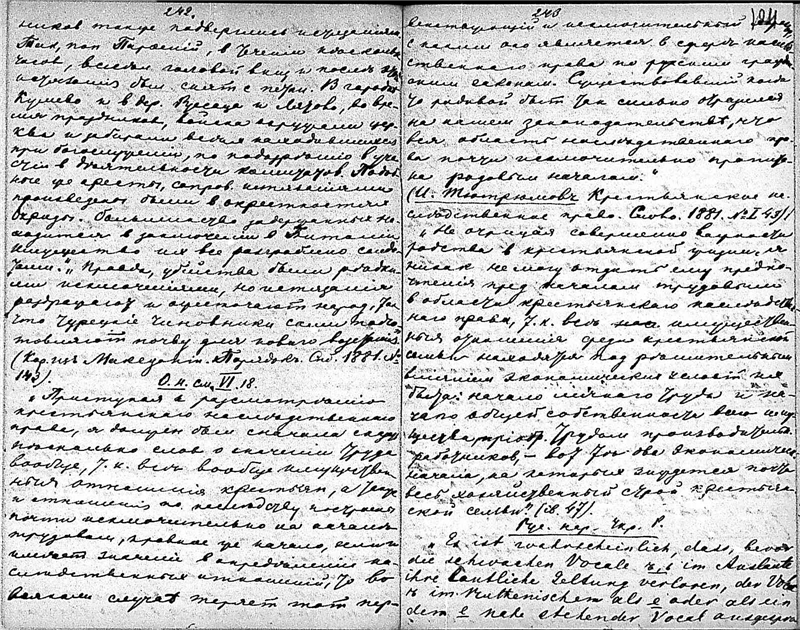 242.
ников также подверглись истязаниям.
Так, поп Парфений, в течении нескольких
часов, висел головой вниз и после
был снят с петли. В городе
Кушево и в дер. Русеца и Лязово, во вре-
мя праздников, войска окружали цер-
ква и забирали всех находившихся
при богослужении, по подозрению в уча-
стии в деятельности комитатов. Подоб-
ные же аресты, сопров. истязаниями
произведены были в окрестностях
Охриды. Большинство задержанных на-
ходится в заключении в Битолии
имущество их все разграблено солда-
тами. „Правда, убийства были редки-
ми исключениями, но истязания
раздражают и ожесточают народ, так
что турецкие чиновники сами подго-
товляют почву для нового
(Кор. из Македонии. Порядок. 1881. №
143).
О. н. см. VI. 18.
„Приступая к рассмотрению
крестьянского наследственного
права, я должен был сначала сказать
несколько слов о значении труда
вообще, т. к. весь вообще имуществен-
ныя отношения крестьян, а также
и отношения по наследству построены
почти исключительно на начале
трудовом, кровное же начало, если и
имеет значение в определении на-
следственных отношений, то во
всяком случае теряет тот пер-
243
венствующий и исключительный
с каким оно является в сфере наслед-
ственного права по русским граждан-
ским законам. Существовавший когда-
то родовой быт так сильно отразился
на нашем законодательстве, что
вся область наследственного пра-
ва почти исключительно
на родовом начале."
(И. Тютрюмовъ Крестьянское на-
следственное право. Слово. 1881. № I. 45)
„Не отрицая совершенно важности
родства в крестьянской среде, я
никак не могу отдать ему предпо-
чтения пред началом трудовым
в области крестьянского наследствен-
ного права, т. к. весь имуществен-
ныя отношения среди крестьянской
семьи находятся под решительным
влиянием экономических условий ея
быта: начало личного труда и на-
чало общей собственности всего иму-
щества, приобр. трудом производительн.
работников, — вот те два экономические
начала, на которых зиждется почти
весь хозяйственный строй крестьян-
ской семьи" (ib. 47).
Рус. нар. Укр. Р.
„Es ist wahrscheinlich, dass, bevor
die schwachen Vocale ъ, ь im Auslaute
ihre lautliche Geltung verloren, der Vocal
ь im als e oder als ein
dem e nahe stehender Vocal ausgespro-